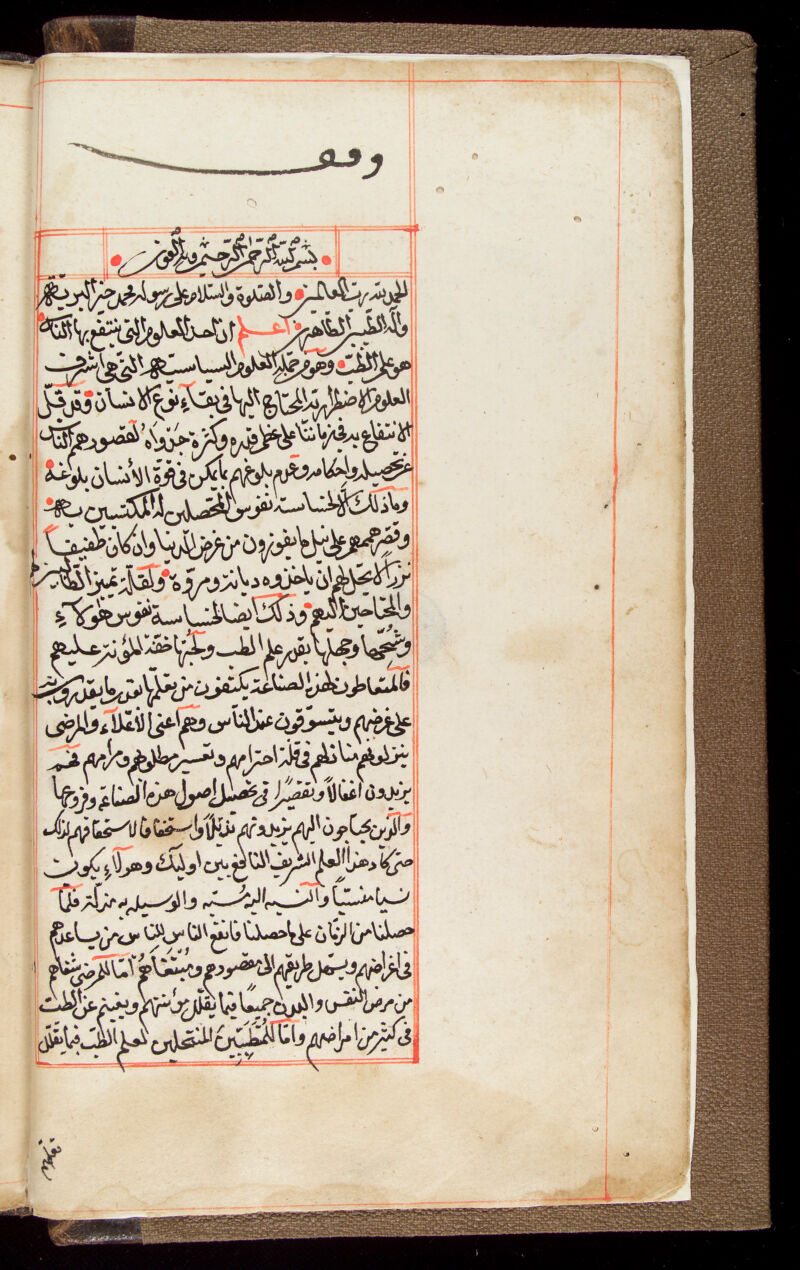 وقف
بسم الله الرحمن الرحيم وبه العون
الحمد لله رب العالمين والصلوة والسلام على رسوله محمد خير البرية
وآله الطيبين الطاهرين اعلم ان احد العلوم التى ينتفع بها الناس
هو علم الطب وهو من جملة العلوم السياسية التى هى اشرف
العلوم الاضطرارية المحتاج اليها فى بقاء نوع الانسان وقد قل
الانتفاع به فى زماننا على عظم قدره وكثرة جدواه لقصور همم الناس
عن تحصيله واحكامه وعدم بلوغهم ما يمكن فى قوة الأنسان بلوغه
وما ذلك الا لخساسة نفوس المحصلين له المكتسبين به
وقصر هممهم على نيل ما يفوزون من غرض الدنيا وان كان طفيفاً
نزراً لا يحل لهم ان ياخذوه ديانة ومروّة ولقلة تميز الطالبين لهم
والمحتاجين اليهم وذلك ايضا لخساسة نفوس هولاء
وشحّها وجهلها بقدر علم الطب ولحبها خفة المؤنة عليهم
فالمتعاطون لهذه الصناعة يكتفون من تعلمها بقدر ما يقدرون به
على غرضهم ويتسوقون عند الناس وهم اعنى الأعلاء والمرضى
ينزلونهم منازلهم فى قلة احترامهم وتعسير مطلوبهم ومرامهم فهم
يزيدون اغفالاً وتقصيرا فى تحصيل اصول هذه الصناعة وفروعها
والذين يحتاجون اليهم يزيدونهم تذليلاً واستخفافا لاستحقاقهم لذلك
حتى كاد هذا العلم الشريف النافع بين اوليك وهولاء يكون
نسيا منسيّاً والنسبه اليه والوسيله به مذلّة فلمّا
حصلنا من الزمان على ما حصلنا فانفع الناس للناس من يساعدهم
فى اغراضهم ويسهل طريقهم الى مقصودهم ومبتغاهم امّا للمرضى شفاهم
من مرض النفس والبدن جميعا فيما يقلل مؤنتهم ويغنيهم عن الطب
فى كثير من امراضهم وامّا للمتطببين المنتحلين لعلم الطب فبما يقلل